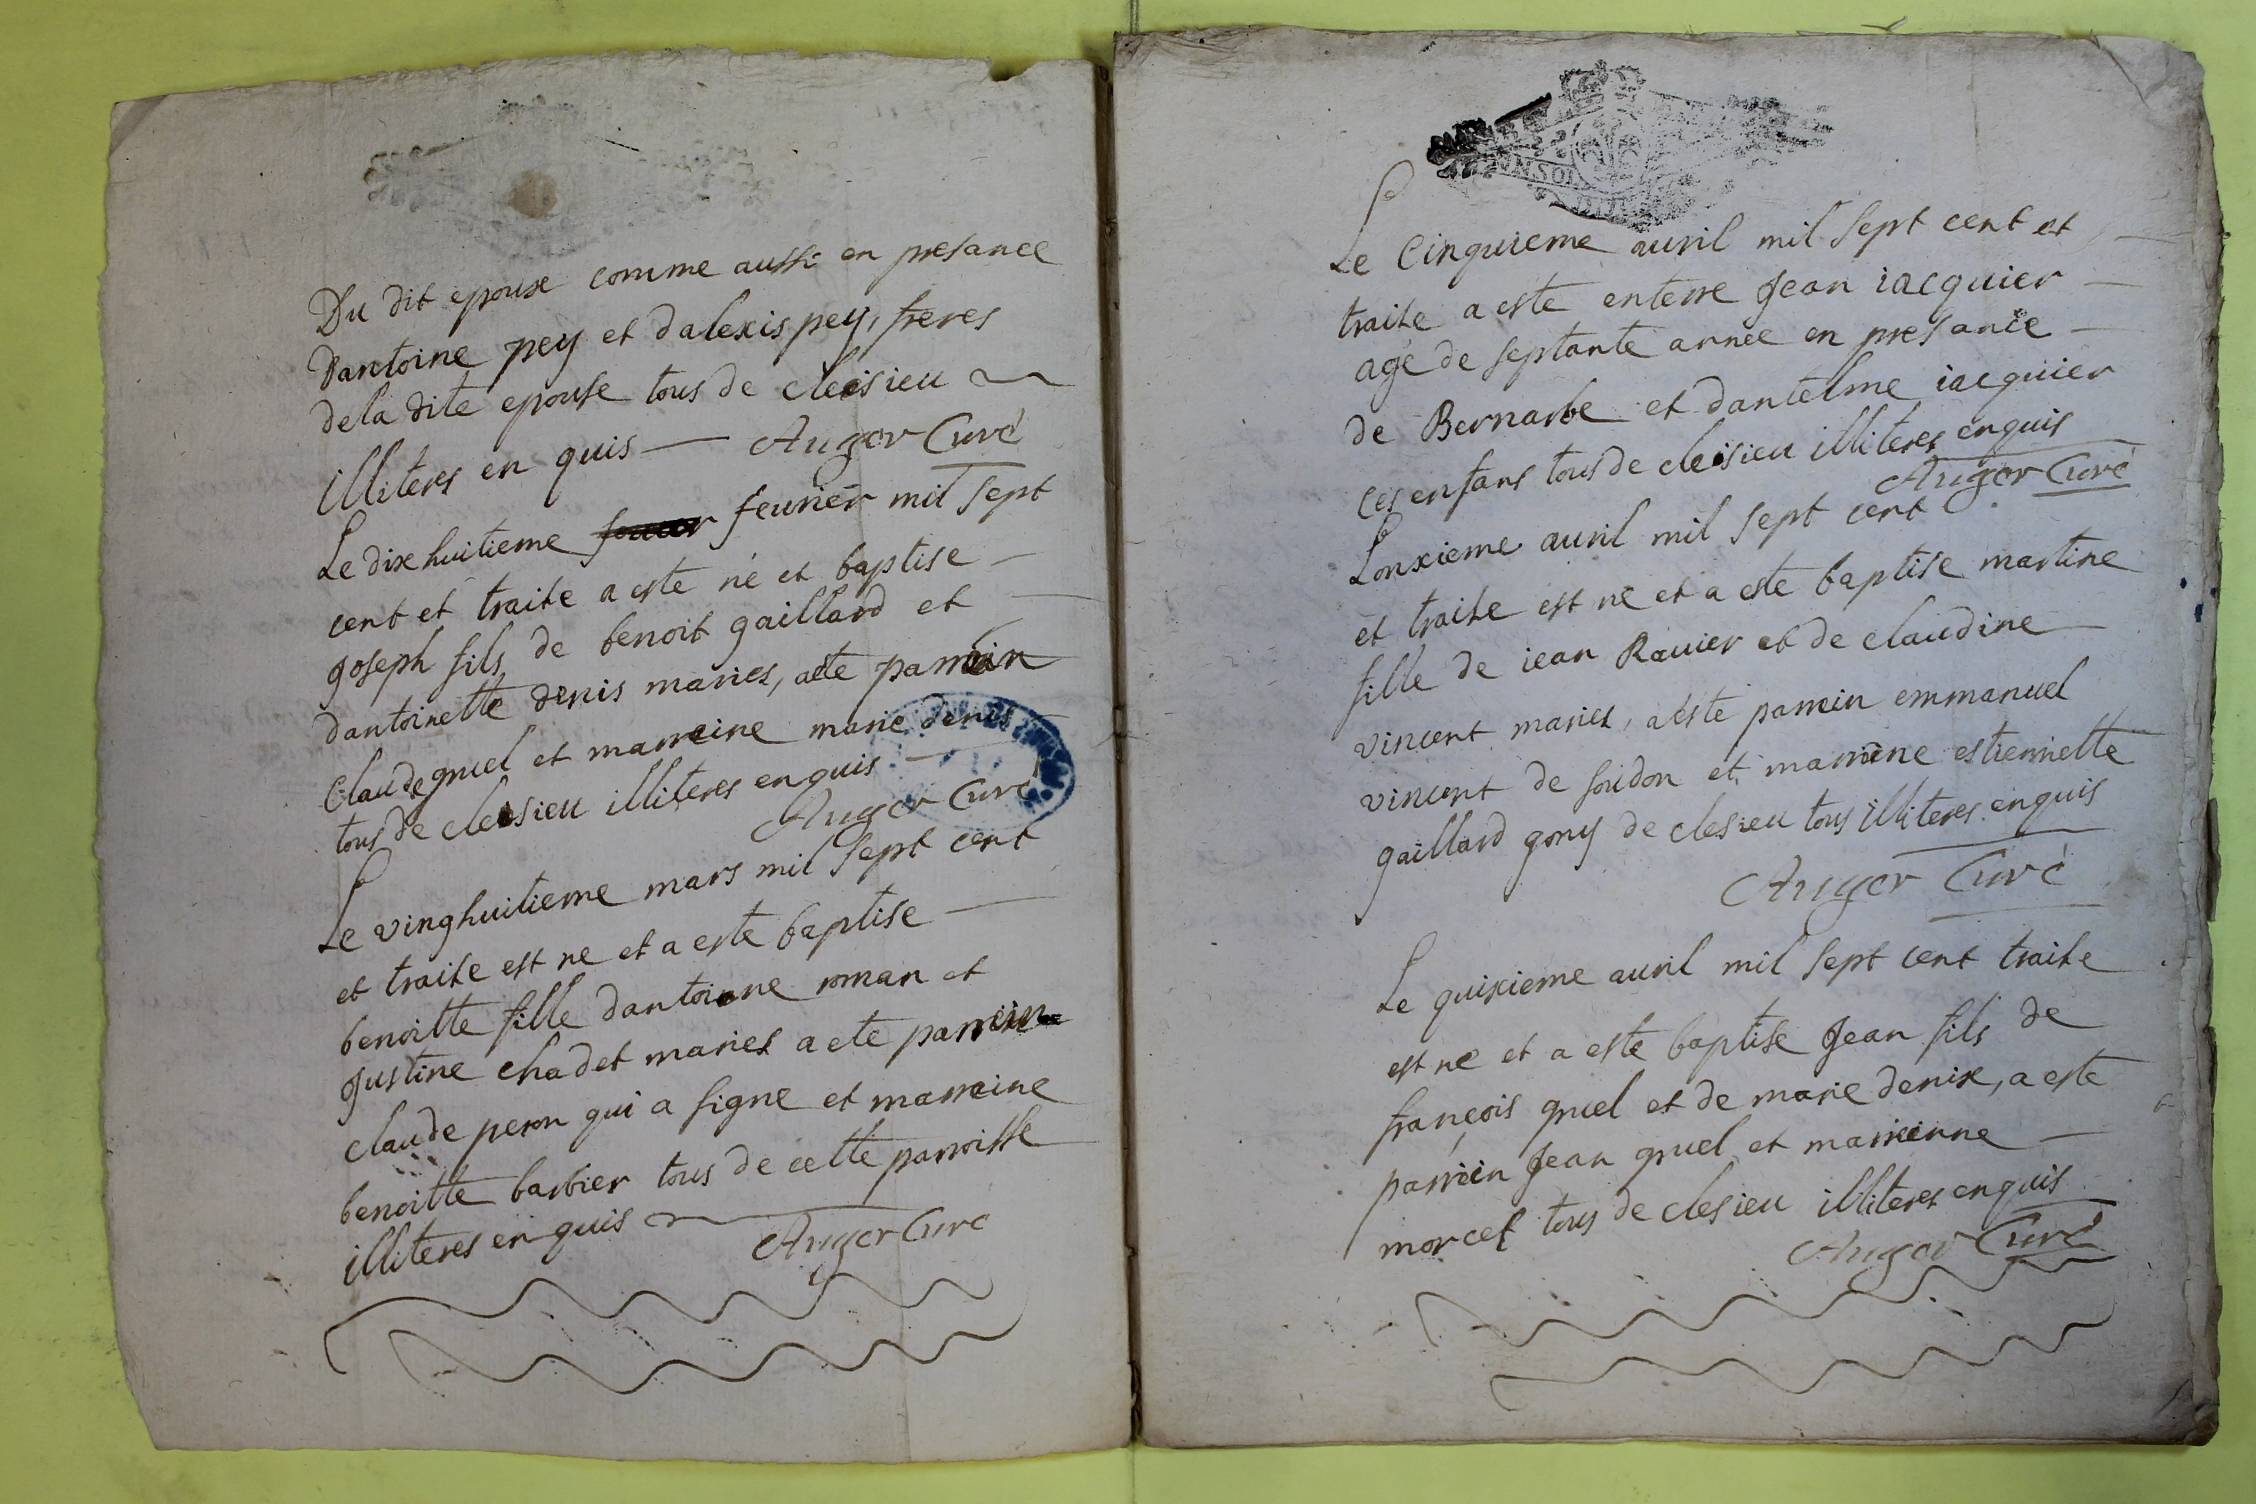 Du dit epoux comme aussi en presance
Dantoine pey et dalexis pey, freres
dela dite epouse tous de cleisieu
illiteres en quis Auger Curé
Le dixhuitieme feurier mil sept
cent et traite a este né et baptise
Joseph fils de benoit gaillard et
dantoinette denis maries, a ete parrein
Claude gruel et marreine marie denis
tous de cleisieu illiteres enquis
Auger Curé
Le vinghuitieme mars mil sept cent
et traite est ne et a este baptise
benoitte fille dantoine roman et
Justine chadet maries a ete parrein
claude peron qui a signe et marreine
benoitte barbier tous de cette parroisse
illiteres en quis Auger Curé
Le Cinquieme auril mil sept cent et
traite a este enterre Jean iacquier
agé de septante annee en presance
de Bernarde et dantelme iacquier
ces enfans tous de cleisieu illiteres enquis
Auger Curé
Lonxieme auril mil sept cent
et traite est né et a este baptise martine
fille de iean Rauier et de claudine
vincent maries, a este parrein emmanuel
vincent de soudon et marreine estiennette
gaillard gony de clesieu tous illiteres enquis
Auger Curé
Le quixieme auril mil sept cent traite
est ne et a este baptise Jean fils de
françois gruel et de marie denix, a este
parrein Jean gruel et marreinne
morcel tous de clesieu illiteres enquis
Auger Curé